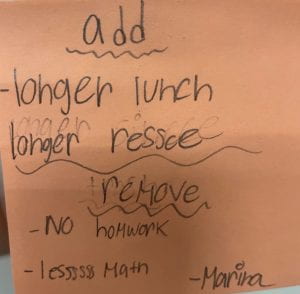 add
-longer lunch
longer ressee
remove
- NO homwork
- lesssss Math
-Marina